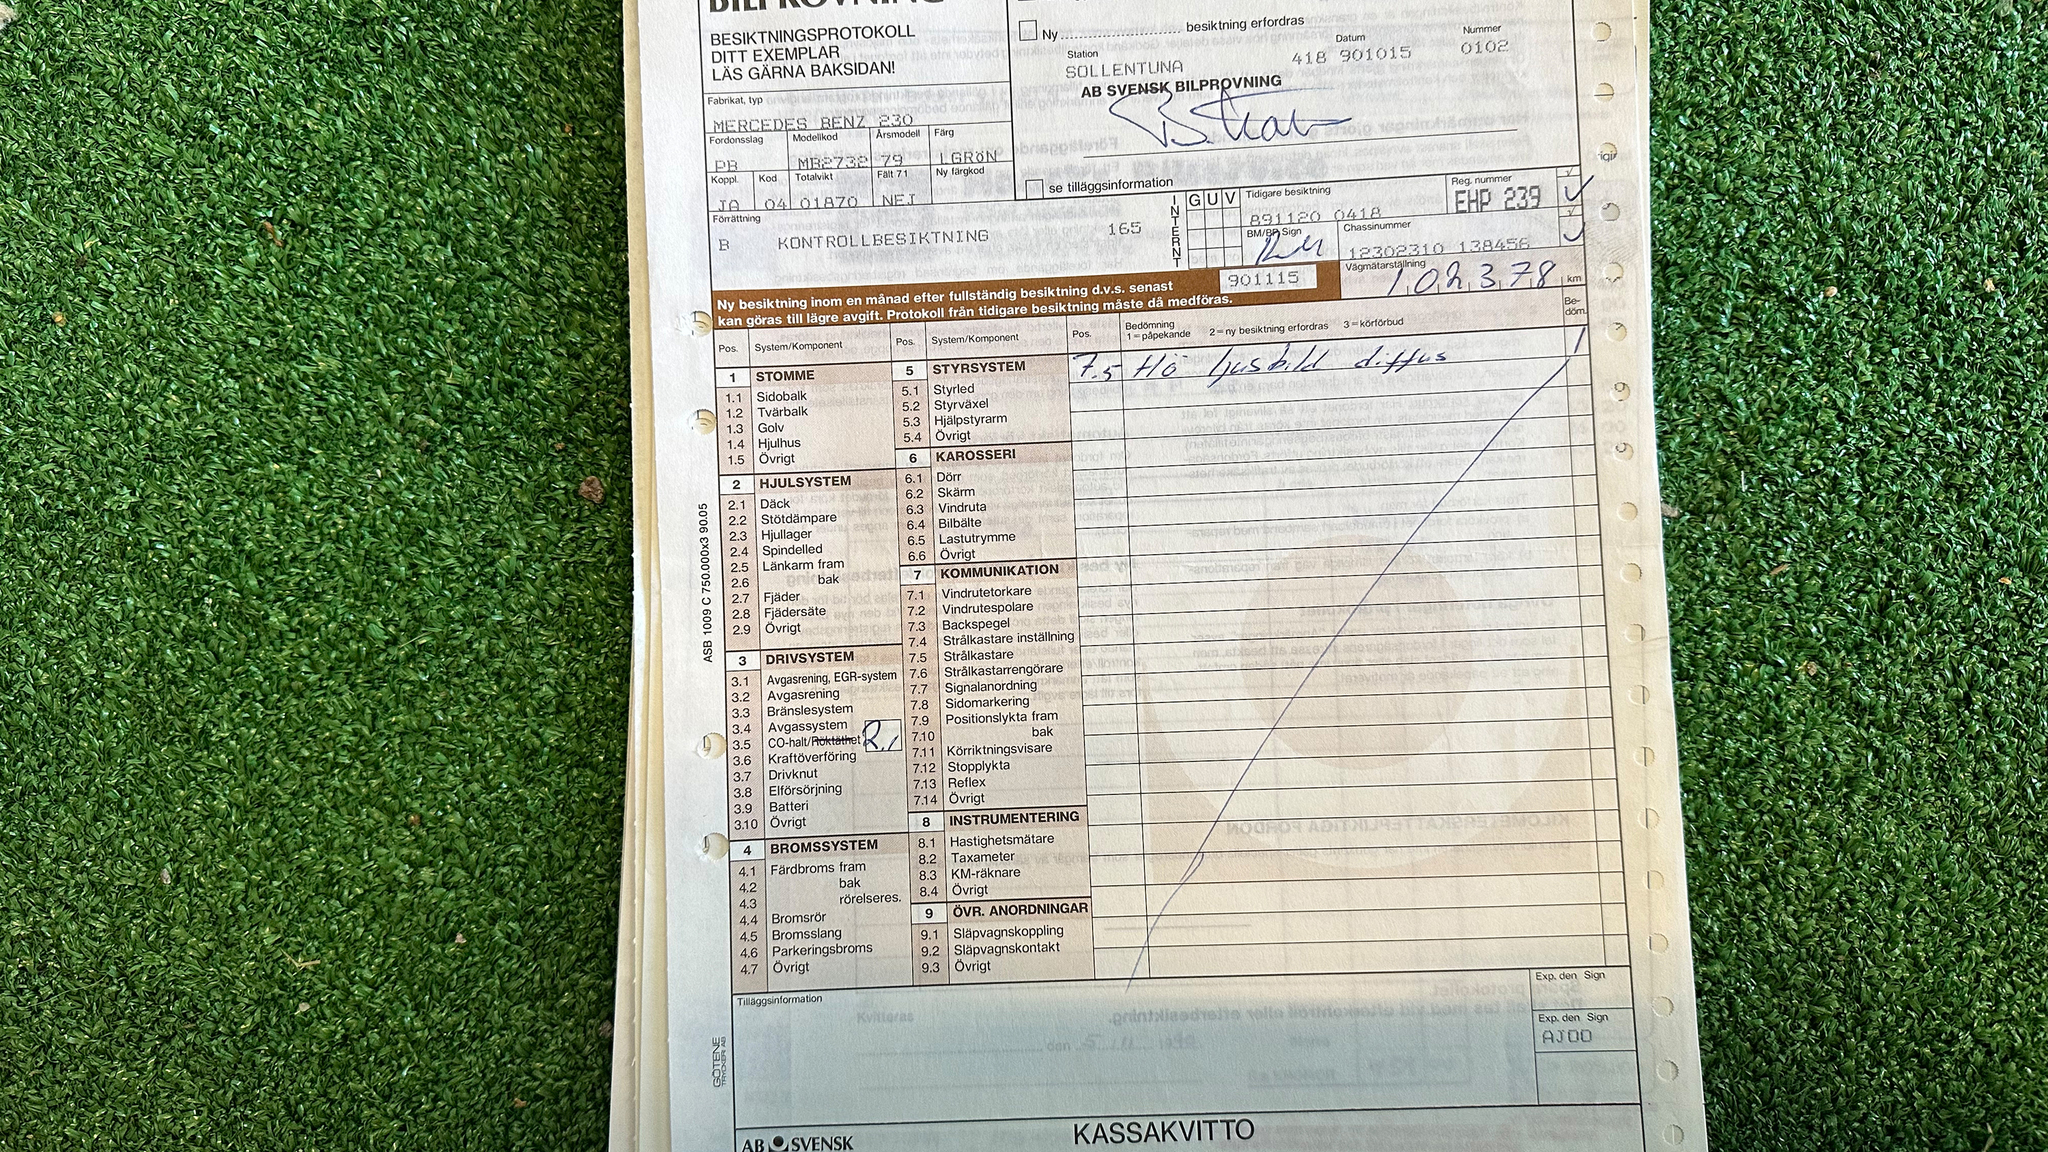 BILPROVNING
BESIKTNINGSPROTOKOLL
DITT EXEMPLAR
LÄS GÄRNA BAKSIDAN!
Ny besiktning erfordras
Station Datum Nummer
SOLLENTUNA 418 901015 0102
AB SVENSK BILPROVNING
Fabrikat, typ
MERCEDES BENZ 230
Fordonsslag Modellkod Årsmodell Färg
PB MB2732 79 LGRÖN
Koppl. Kod Totalvikt Fält 71 Ny färgkod
JA 04 01870 NEJ
se tilläggsinformation
INTERNT
G U V
Tidigare besiktning
891120 0418
Reg. nummer
EHP 239
Förrättning
B KONTROLLBESIKTNING 165
BM/BP Sign
Chassinummer
12302310 138456
Vägmätarställning
102378 km
Ny besiktning inom en månad efter fullständig besiktning d.v.s. senast 901115
kan göras till lägre avgift. Protokoll från tidigare besiktning måste då medföras.
Pos. System/Komponent Pos. System/Komponent Pos. Bedömning
1=påpekande 2=ny besiktning erfordras 3=körförbud
Be-
döm.
7.5 Hö ljusbild diffus 1
1 STOMME
1.1 Sidobalk
1.2 Tvärbalk
1.3 Golv
1.4 Hjulhus
1.5 Övrigt
2 HJULSYSTEM
2.1 Däck
2.2 Stötdämpare
2.3 Hjullager
2.4 Spindelled
2.5 Länkarm fram
2.6 bak
2.7 Fjäder
2.8 Fjädersäte
2.9 Övrigt
3 DRIVSYSTEM
3.1 Avgasrening, EGR-system
3.2 Avgasrening
3.3 Bränslesystem
3.4 Avgassystem
3.5 CO-halt/Röktäthet 2,1
3.6 Kraftöverföring
3.7 Drivknut
3.8 Elförsörjning
3.9 Batteri
3.10 Övrigt
4 BROMSSYSTEM
4.1 Färdbroms fram
4.2 bak
4.3 rörelseres.
4.4 Bromsrör
4.5 Bromsslang
4.6 Parkeringsbroms
4.7 Övrigt
5 STYRSYSTEM
5.1 Styrled
5.2 Styrväxel
5.3 Hjälpstyrarm
5.4 Övrigt
6 KAROSSERI
6.1 Dörr
6.2 Skärm
6.3 Vindruta
6.4 Bilbälte
6.5 Lastutrymme
6.6 Övrigt
7 KOMMUNIKATION
7.1 Vindrutetorkare
7.2 Vindrutespolare
7.3 Backspegel
7.4 Strålkastare inställning
7.5 Strålkastare
7.6 Strålkastarrengörare
7.7 Signalanordning
7.8 Sidomarkering
7.9 Positionslykta fram
7.10 bak
7.11 Körriktningsvisare
7.12 Stopplykta
7.13 Reflex
7.14 Övrigt
8 INSTRUMENTERING
8.1 Hastighetsmätare
8.2 Taxameter
8.3 KM-räknare
8.4 Övrigt
9 ÖVR. ANORDNINGAR
9.1 Släpvagnskoppling
9.2 Släpvagnskontakt
9.3 Övrigt
Tilläggsinformation
Exp. den Sign
Exp. den Sign
AJOO
ASB 1009 C 750.000x3 90.05
GÖTENE
TRYCKERI AB
AB SVENSK
KASSAKVITTO